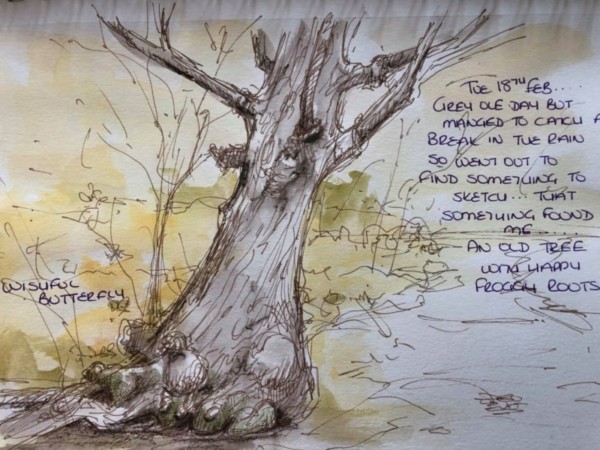 TUE 18TH FEB....
GREY OLE DAY BUT
MANGED TO CATCH A
BREAK IN THE RAIN
SO WENT OUT TO
FIND SOMETHING TO
SKETCH... THAT
SOMETHING FOUND
ME.....
AN OLD TREE
WITH HAPPY
FROGGY ROOTS
WISHFUL
BUTTERFLY